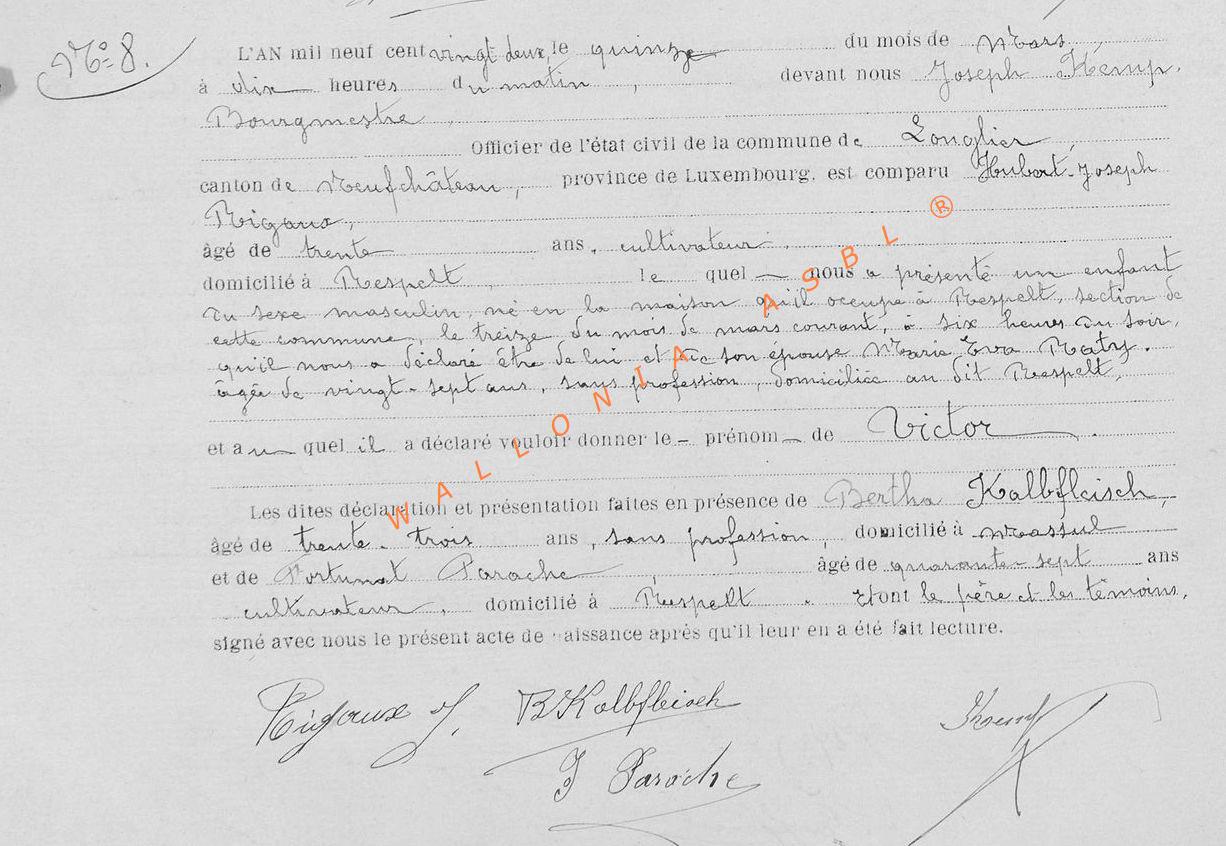 No 8.
L'AN mil neuf cent vingt deux, le quinze du mois de Mars,
à dix heures du matin, devant nous Joseph Kemp,
Bourgmestre,
Officier de l'état civil de la commune de Longlier,
canton de Neufchâteau, province de Luxembourg, est comparu Hubert-Joseph
Rigaux,
âgé de trente ans, cultivateur,
domicilié à Respelt, le quel nous a présenté un enfant
du sexe masculin, né en la maison qu'il occupe à Respelt, section de
cette commune, le treize du mois de mars courant, à six heures du soir,
qu'il nous a déclaré être de lui et de son épouse Marie Eva Raty.
âgée de vingt-sept ans, sans profession, domiciliée au dit Respelt,
et au quel il a déclaré vouloir donner le prénom de Victor.
Les dites déclaration et présentation faites en présence de Bertha Kalbfleisch,
âgé de trente-trois ans, sans profession, domicilié à Massul
et de Fortunat Parache, âgé de quarante-sept ans
cultivateur, domicilié à Respelt. Et ont le père et les témoins,
signé avec nous le présent acte de naissance après qu'il leur en a été fait lecture.
Rigaux J. B Kalbfleisch Kemp
F Parache
WALLONIA ASBL ®